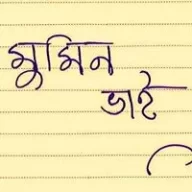 মুমিন
ভাই